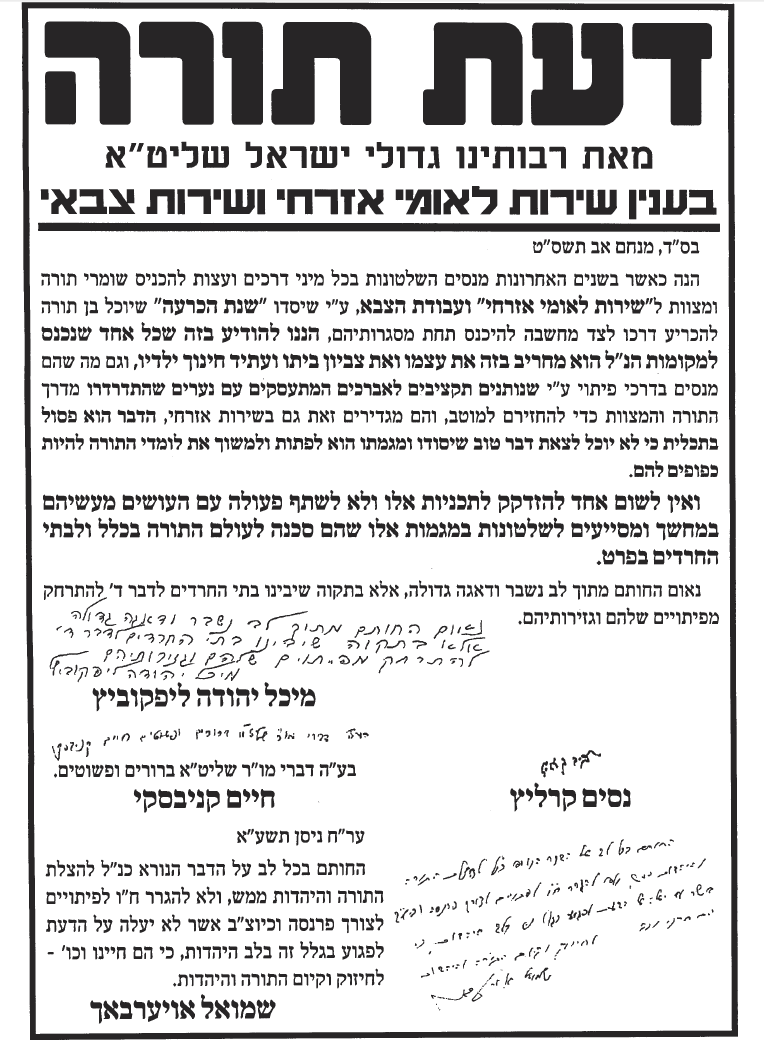 דעת תורה
מאת רבותינו גדולי ישראל שליט"א
בענין שירות לאומי אזרחי ושירות צבאי
בס"ד, מנחם אב תשס"ט
הנה כאשר בשנים האחרונות מנסים השלטונות בכל מיני דרכים ועצות להכניס שומרי תורה
ומצוות ל"שירות לאומי אזרחי" ועבודת הצבא, ע"י שיסדו "שנת הכרעה" שיוכל בן תורה
להכריע דרכו לצד מחשבה להיכנס תחת מסגרותיהם, הננו להודיע בזה שכל אחד שנכנס
למקומות הנ"ל הוא מחריב בזה את עצמו ואת צביון ביתו ועתיד חינוך ילדיו, וגם מה שהם
מנסים בדרכי פיתוי ע"י שנותנים תקציבים לאברכים המתעסקים עם נערים שהתדרדרו מדרך
התורה והמצוות כדי להחזירם למוטב, והם מגדירים זאת גם בשירות אזרחי, הדבר הוא פסול
בתכלית כי לא יוכל לצאת דבר טוב שיסודו ומגמתו הוא לפתות ולמשוך את לומדי התורה להיות
כפופים להם.
ואין לשום אחד להזדקק לתכניות אלו ולא לשתף פעולה עם העושים מעשיהם
במחשך ומסייעים לשלטונות במגמות אלו שהם סכנה לעולם התורה בכלל ולבתי
החרדים בפרט.
נאום החותם מתוך לב נשבר ודאגה גדולה, אלא בתקוה שיבינו בתי החרדים לדבר ד' להתרחק
מפיתויים שלהם וגזירותיהם.
נאום החותם מתוך לב נשבר ודאגה גדולה
אלא בתקוה שיבינו בתי החרדים לדבר ד'
להתרחק מפיתוים שלהם וגזירותיהם
מיכל יהודה ליפקוביץ
מיכל יהודה ליפקוביץ
בעה דברי מו"ר שליט"א ברורים ופשוטים חיים קניבסקי
בע"ה דברי מו"ר שליט"א ברורים ופשוטים.
חיים קניבסקי
נסים קרליץ
ער"ח ניסן תשע"א
החותם בכל לב על הדבר הנורא כנ"ל להצלת
התורה והיהדות ממש, ולא להגרר ח"ו לפיתויים
לצורך פרנסה וכיוצ"ב אשר לא יעלה על הדעת
לפגוע בגלל זה בלב היהדות, כי הם חיינו וכו' -
לחיזוק וקיום התורה והיהדות.
שמואל אויערבאך